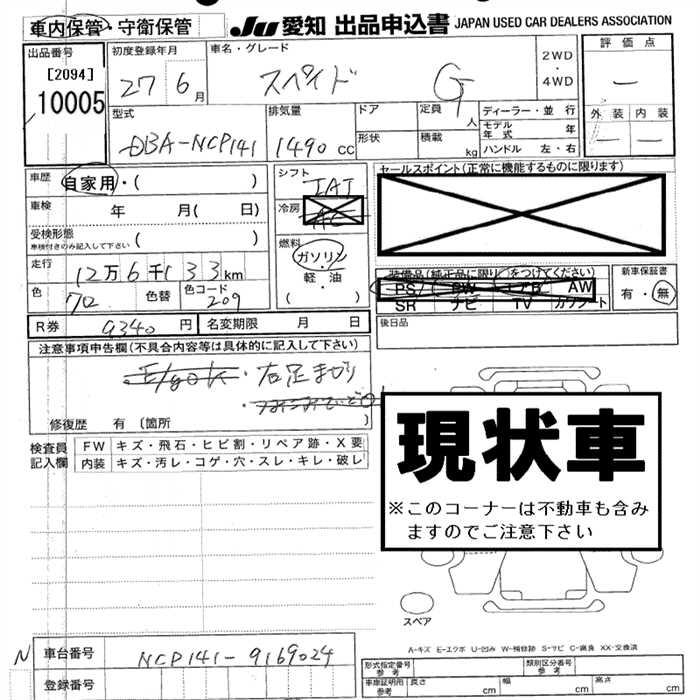 車内保管・守衛保管 JU 愛知 出品申込書 JAPAN USED CAR DEALERS ASSOCIATION
出品番号 [2094] 10005
初度登録年月 27 6月
車名・グレード スペイド G
2WD・4WD
評価点 ―
外装 ― 内装 ―
型式 DBA-NCP141
排気量 1490 CC
ドア 形状
定員 人 積載 kg
ディーラー・並行
モデル年式 年
ハンドル 左・右
車歴 自家用・( )
車検 年 月( 日)
受検形態 車検付きのみ記入して下さい ( )
走行 12万6千133km
色 クロ 色替 色コード 209
シフト IAT
冷房 AC
燃料 ガソリン・軽油 ( )
セールスポイント(正常に機能するものに限ります)
装備品(純正品に限り○をつけてください)
PS PW エアB AW
SR ナビ TV カワシート
新車保証書 有・無
R券 9340円 名変期限 月 日
後日品
注意事項申告欄(不具合内容等は具体的に記入して下さい)
・右足まわり
修復歴 有 〔箇所 〕
検査員記入欄
FW キズ・飛石・ヒビ割・リペア跡・X要
内装 キズ・汚レ・コゲ・穴・スレ・キレ・破レ
現状車
※このコーナーは不動車も含み
ますのでご注意下さい
スペア
A-キズ E-エクボ U-凹み W-補修跡 S-サビ C-腐食 XX-交換済
N 車台番号 NCP141-9169024
登録番号
形式指定番号 参考 類別区分番号 参考
車庫証明用 参考 長さ cm 幅 cm 高さ cm